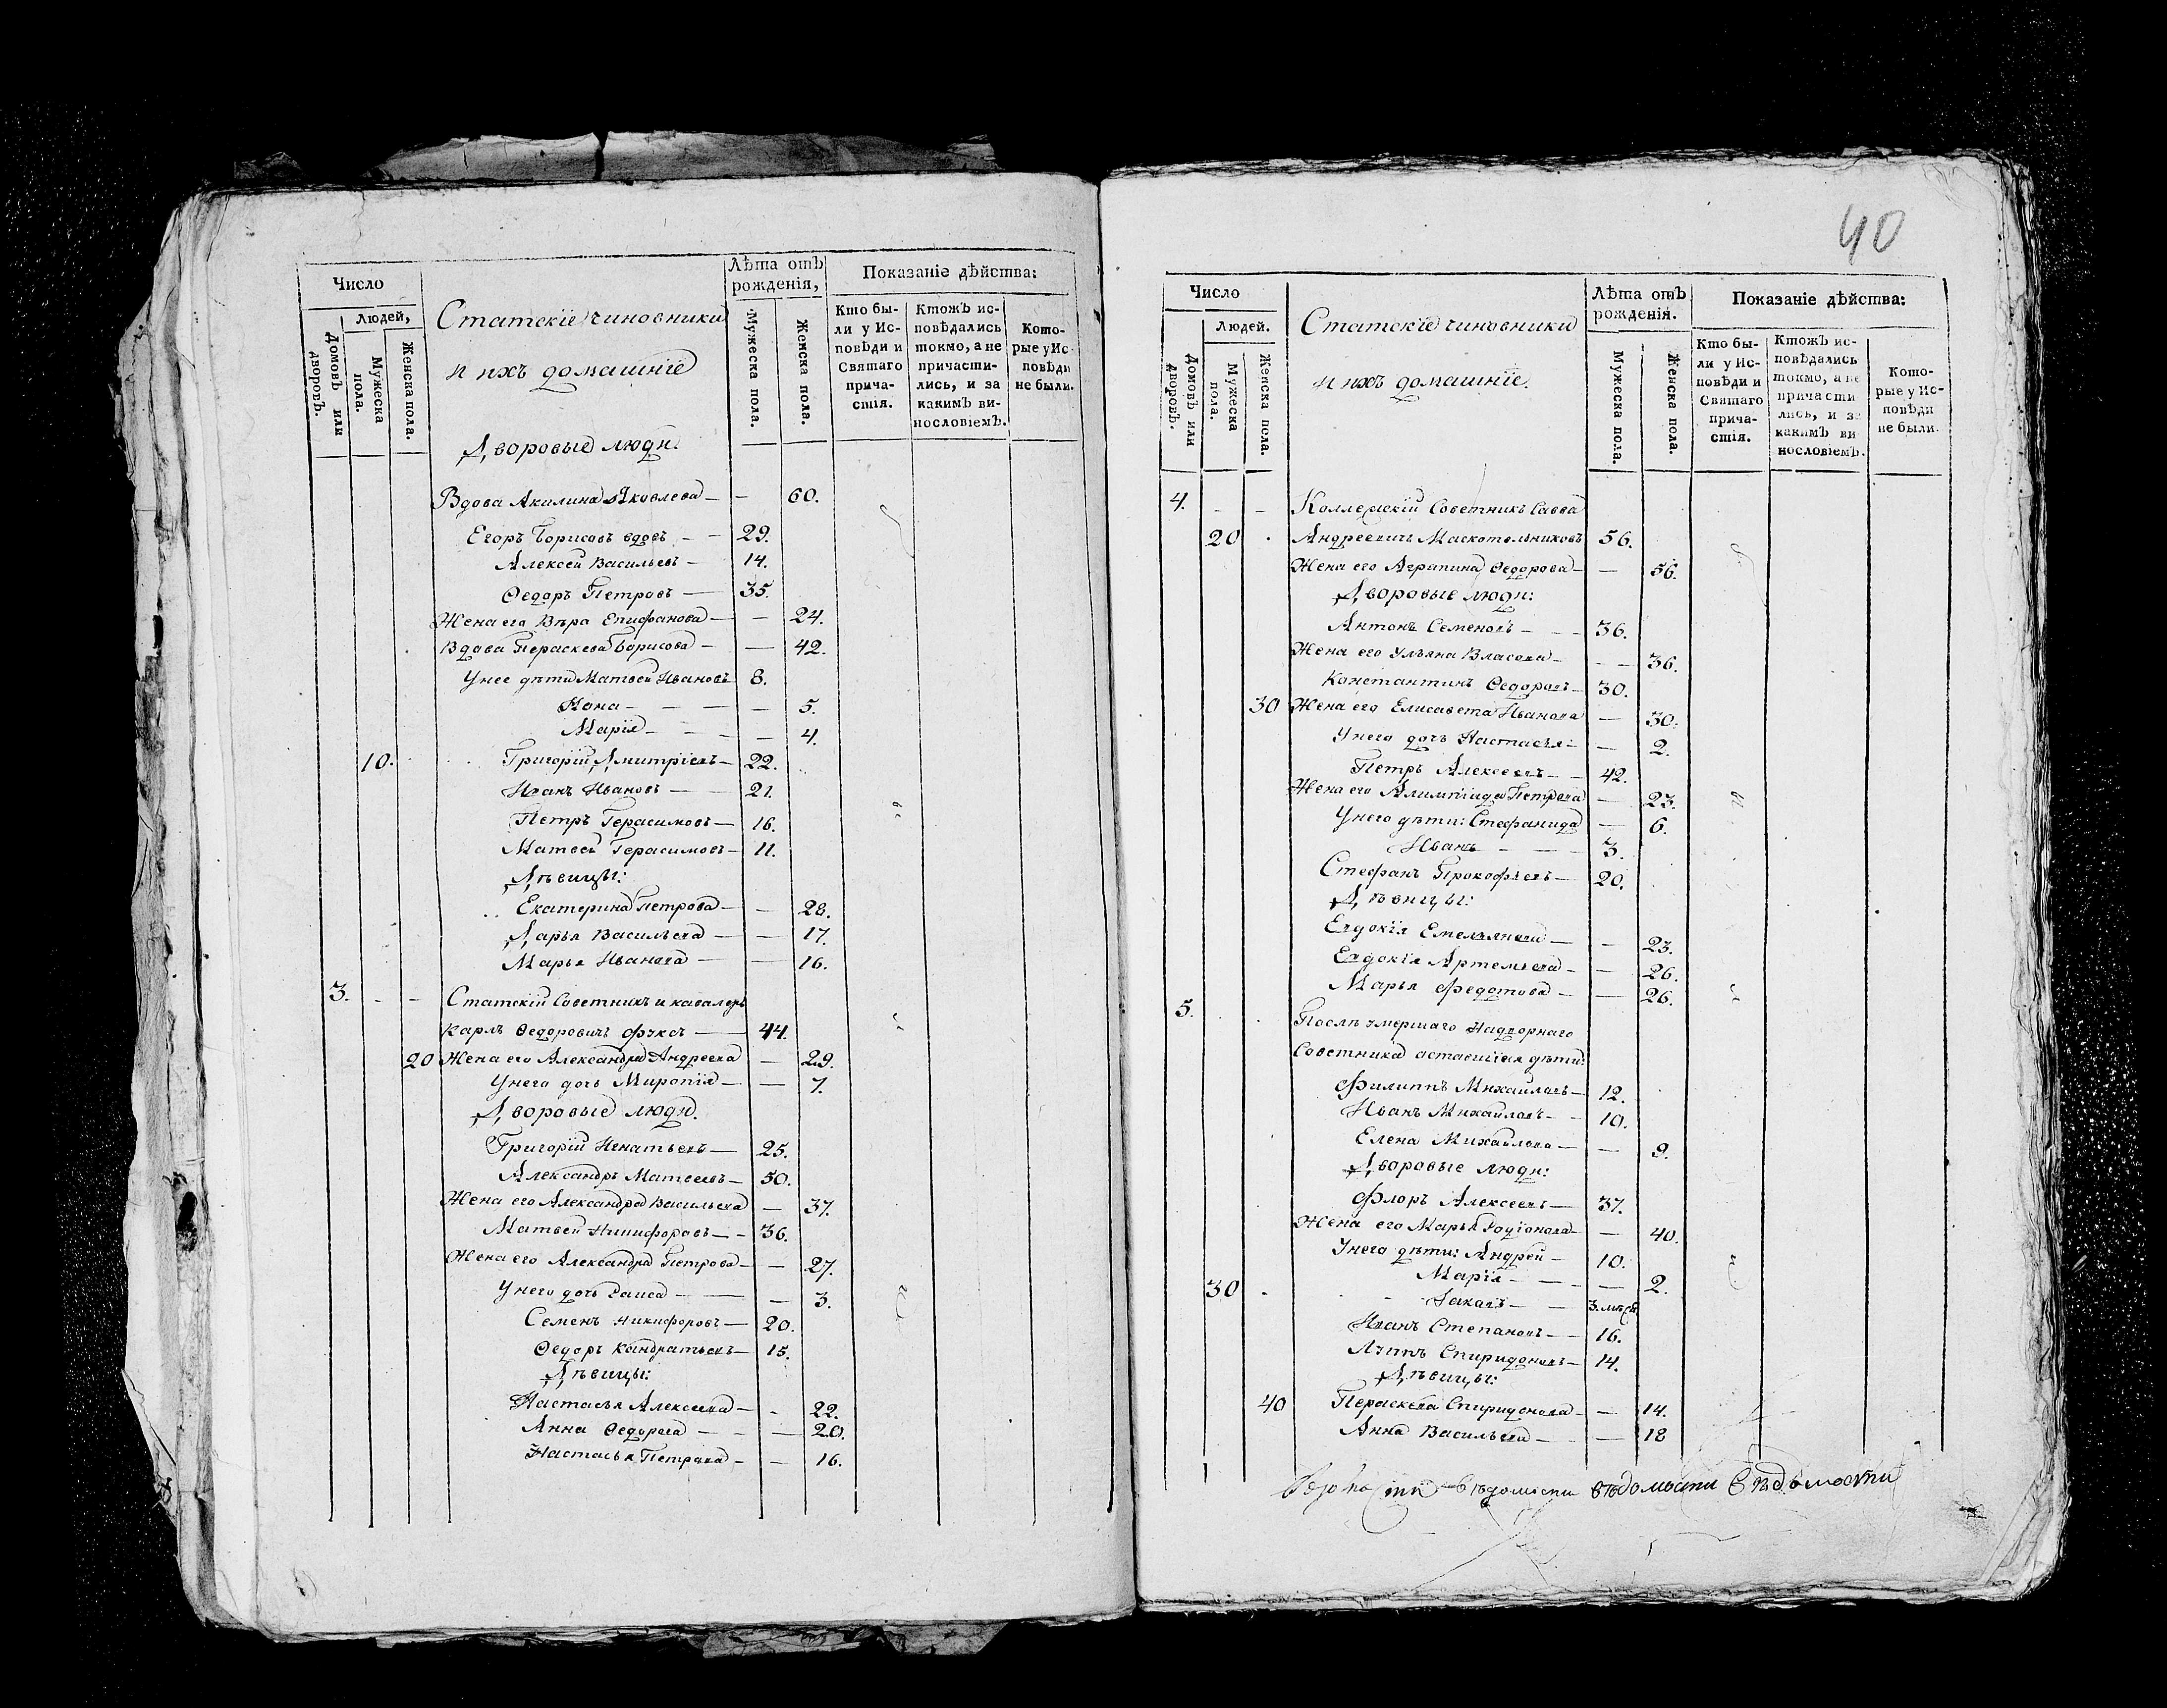 Число
Людей,
Домовъ или дворовъ.
Мужеска пола.
Женска пола.
Статскіе чиновники
и ихъ домашніе
Лѣта отъ рожденія,
Мужеска пола.
Женска пола.
Показаніе дѣйства:
Кто были у Исповѣди и Святаго причастія.
Ктожъ исповѣдались токмо, а не причастились, и за какимъ винословіемъ.
Которые у Исповѣди не были.
Дворовые люди.
Вдова Акилина Яковлева — — 60.
Егоръ Борисовъ вдовъ — — 29.
Алексей Васильевъ — 14.
Ѳедоръ Петровъ — 35.
Жена его Вѣра Епифанова — — 24.
Вдова Параскева Борисова — — 42.
У нее дѣти Матвей Ивановъ 8.
— — — — 5.
Марія — — — — 4.
10. Григорій Дмитріевъ — 22.
Иванъ Ивановъ — — 21.
Петръ Герасимовъ — 16.
Матвей Герасимовъ — 11.
Дѣвицы:
Екатерина Петрова — — 28.
Дарья Васильева — — 17.
Марья Иванова — — 16.
3. — — Статскій Советникъ и кавалеръ
Карлъ Ѳедоровичъ Фуксъ — 44.
20 Жена его Александра Андреева — 29.
У него дочь Миропія — — 7.
Дворовые люди.
Григорій Игнатьевъ — 25.
Александръ Матвеевъ — 50.
Жена его Александра Васильева — 37.
Матвей Никифоровъ — — 36.
Жена его Александра Петрова — — 27.
У него дочь Раиса — — — 3.
Семенъ Никифоровъ — 20.
Ѳедоръ Кандратьевъ — 15.
Дѣвицы:
Настасья Алексеева — — 22.
Анна Ѳедорова — — — 20.
Настасья Петрова — — 16.
40
Число
Людей.
Домовъ или дворовъ.
Мужеска пола.
Женска пола.
Статскіе чиновники
и ихъ домашніе.
Лѣта отъ рожденія.
Мужеска пола.
Женска пола.
Показаніе дѣйства:
Кто были у Исповѣди и Святаго причастія.
Ктожъ исповѣдались токмо, а не причастились, и за какимъ винословіемъ.
Которые у Исповѣди не были.
4. — — Коллежскій Советникъ Савва
20 Андреевичъ Маскотельниковъ 56.
Жена его Агрипина Ѳедорова — — 56.
Дворовые люди:
Антонъ Семеновъ — — — 36.
Жена его Ульяна Власова — — — 36.
Константинъ Ѳедоровъ — 30.
30 Жена его Елисавета Иванова — 30.
У него дочь Настасья: — 2.
Петръ Алексеевъ — — 42.
Жена его Алимпіида Петрова — 23.
У него дѣти: Стефанида — 6.
Иванъ — — — 3.
Стефанъ Прокофьевъ — 20.
Дѣвицы:
Евдокія Емельянова — — 23.
Евдокія Артемьева — — 26.
Марья Федотова — — 26.
5. Послѣ умершаго Надворнаго
Советника оставшіеся дѣти:
Филиппъ Михайловъ — 12.
Иванъ Михайловъ — — 10.
Елена Михайлова — — 9.
Дворовые люди:
Флоръ Алексеевъ — 37.
Жена его Марья Родіонова — — 40.
У него дѣти: Андрей — 10.
Марія — — — — 2.
30 Іаковъ — — 3. мѣся
Иванъ Степановъ — — 16.
Луппъ Спиридоновъ — 14.
Дѣвицы:
40 Параскева Спиридонова — — 14.
Анна Васильева — — 18
ведомости вѣдомости вѣдомости